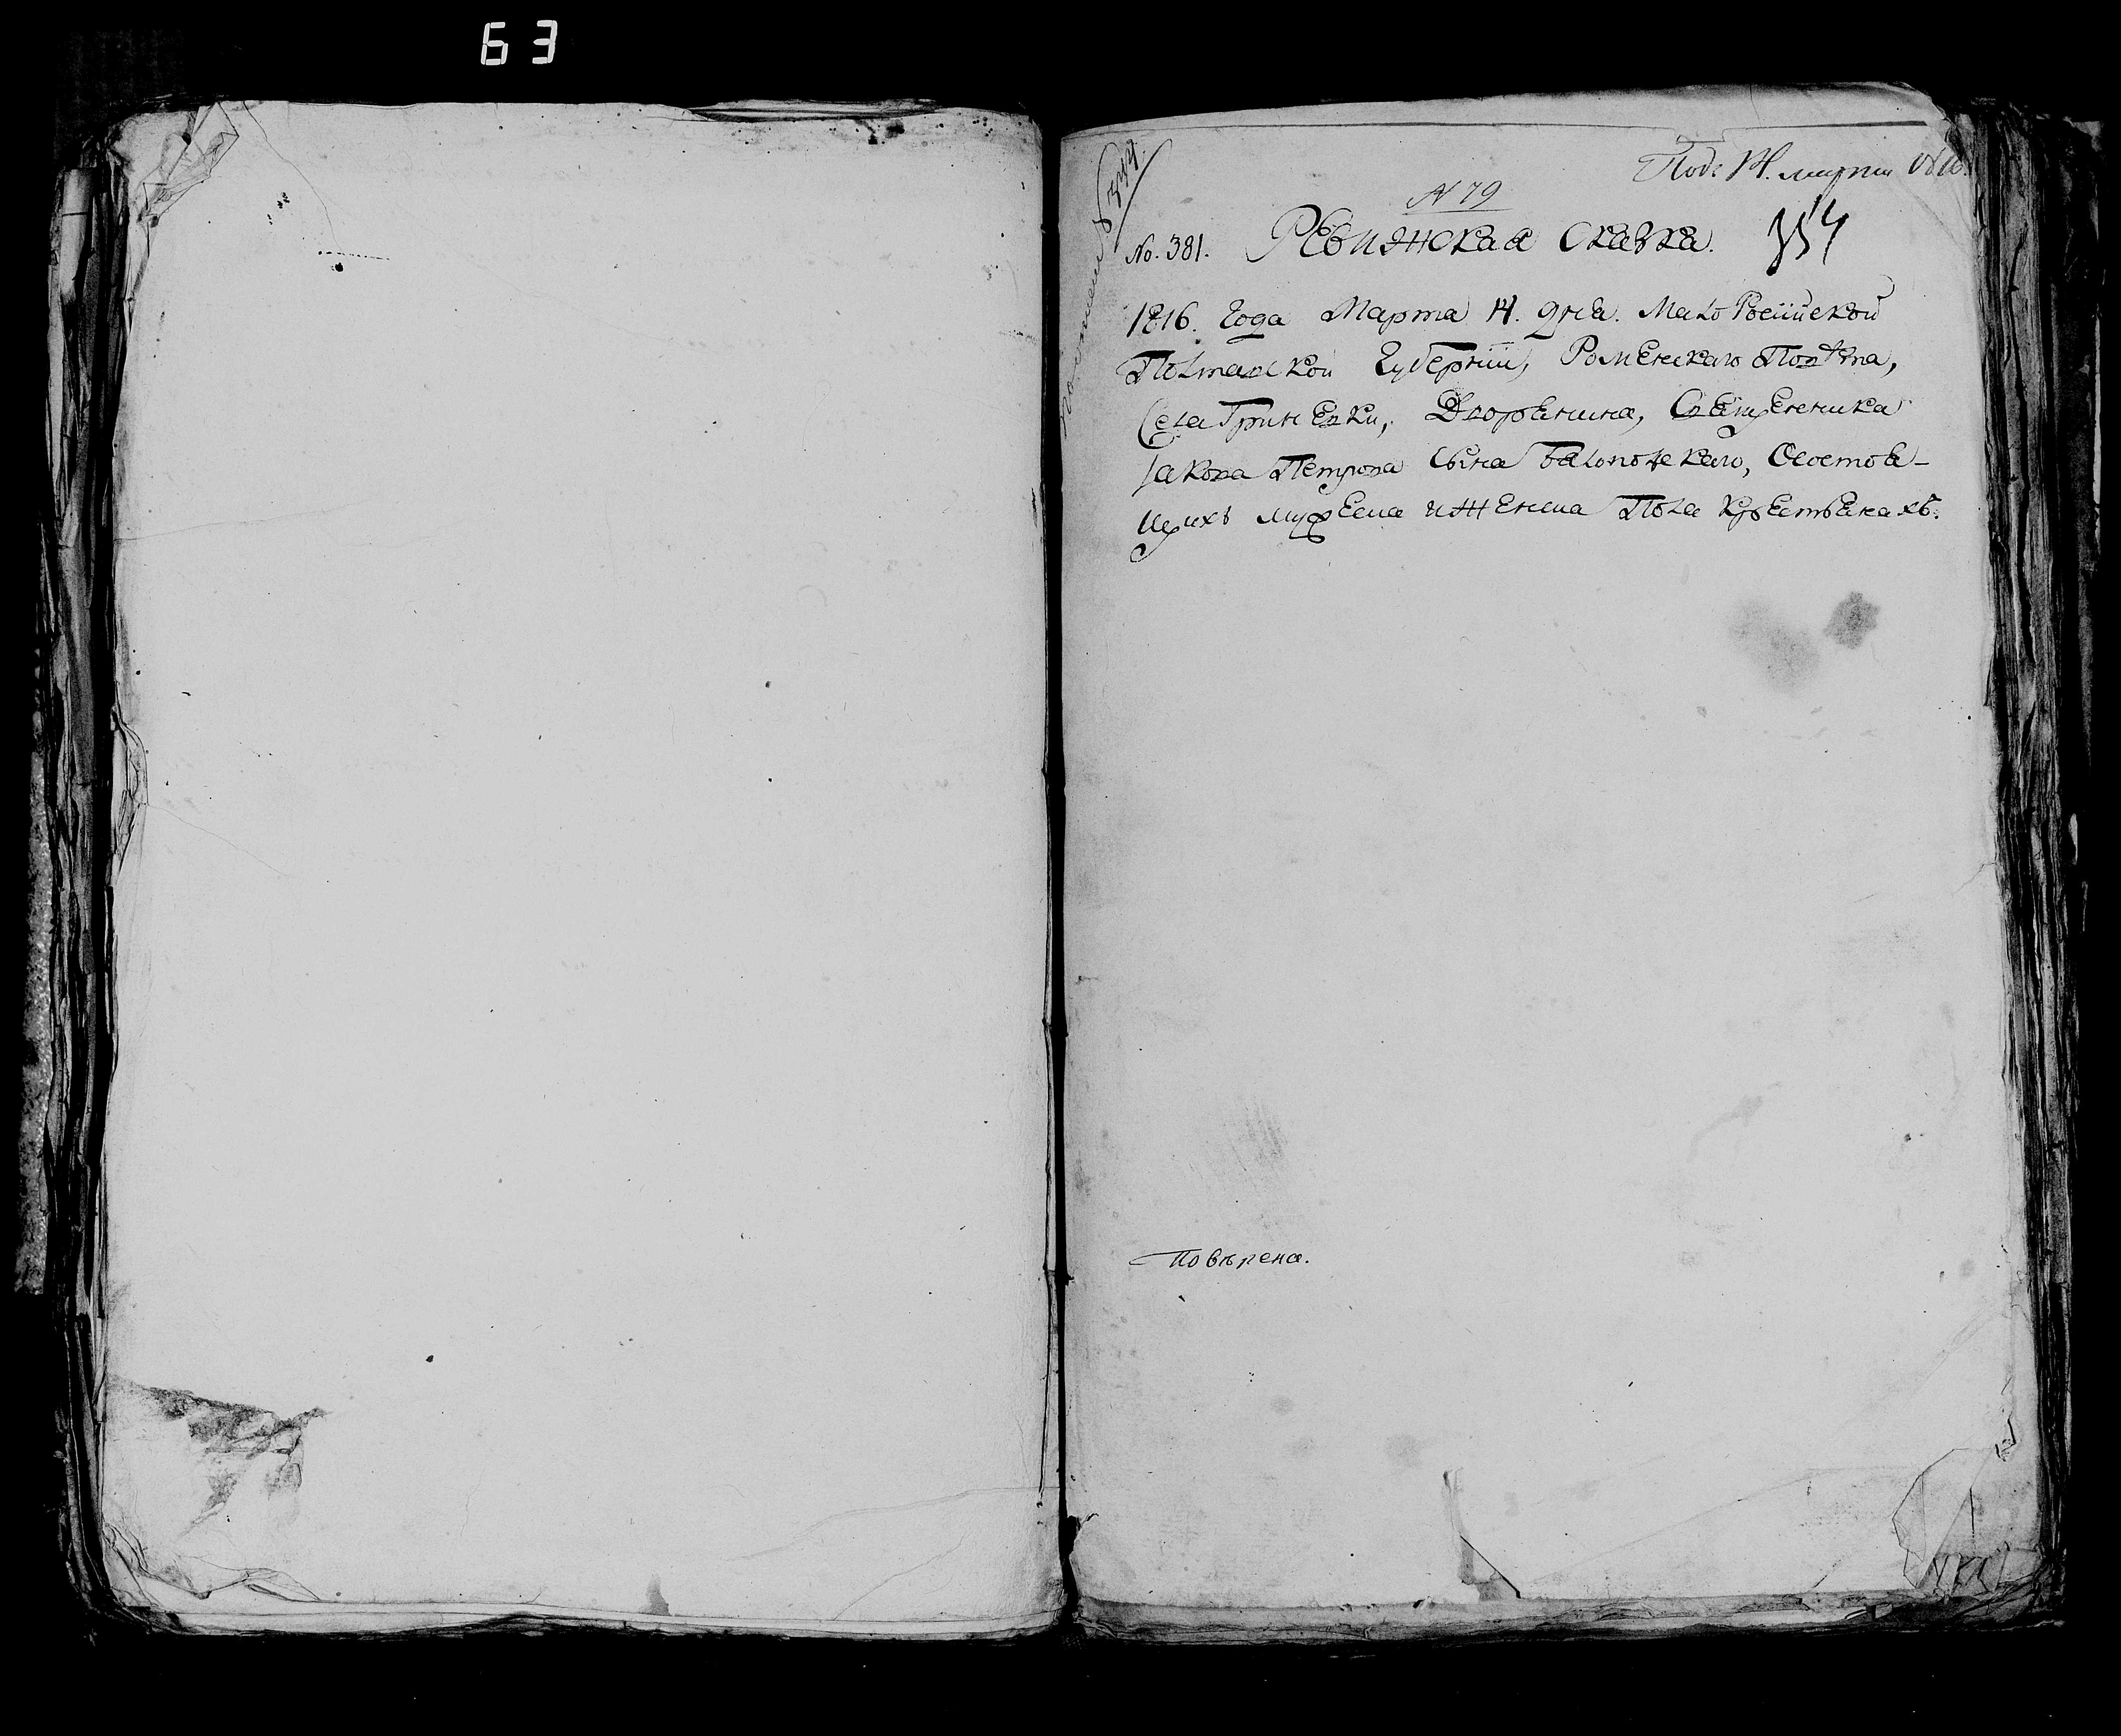 63
Под: 14. марта 1816.
N 79
No. 381. Ревизская Сказка. 354
1816. Года Марта 14. дня. МалоРоссійской
Полтавской Губерніи, Роменскаго Повѣта,
Села Гриневки, Дворянина, Священника
Іакова Петрова Сына Базопожскаго, Осостоя-
щихъ мужеска иЖенска Пола крестьянахъ.
Повѣрена.